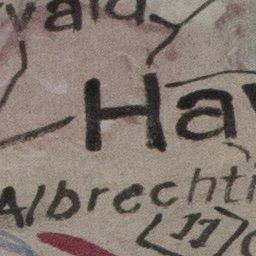 vald
Hav
Albrechti
11